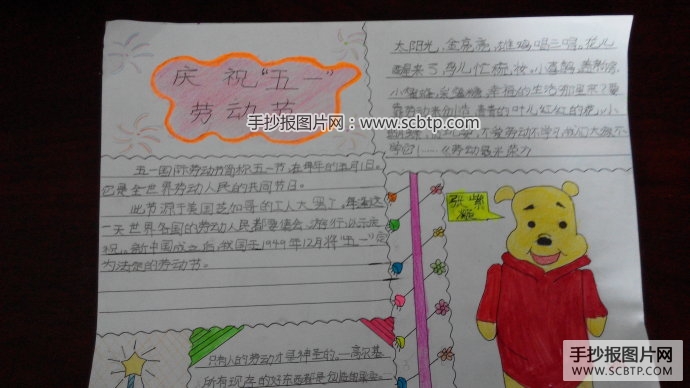 庆祝“五一”
劳动节
太阳光，金亮亮，雄鸡唱三唱。花儿
醒来了，鸟儿忙梳妆。小喜鹊，造新房，
小蜜蜂，采蜜糖，幸福的生活那里来？要
靠劳动来创造。青青的叶儿红红的花，小
不爱劳动不学习
《劳动最光荣》
手抄报图片网：www.scbtp.com
五一国际劳动节简称五一节，在每年的五月1日。
它是全世界劳动人民的共同节日。
此节源于美国芝加哥的工人大罢工，每到这
一天世界各国的劳动人民都要集会、游行，以示庆
祝。新中国成立之后，我国于1949年12月将“五一”定
为法定的劳动节。
张紫
只有人的劳动才是神圣的。—高尔基
所有现存的好东西都是创造的果实。
手抄报图片网
WWW.SCBTP.COM